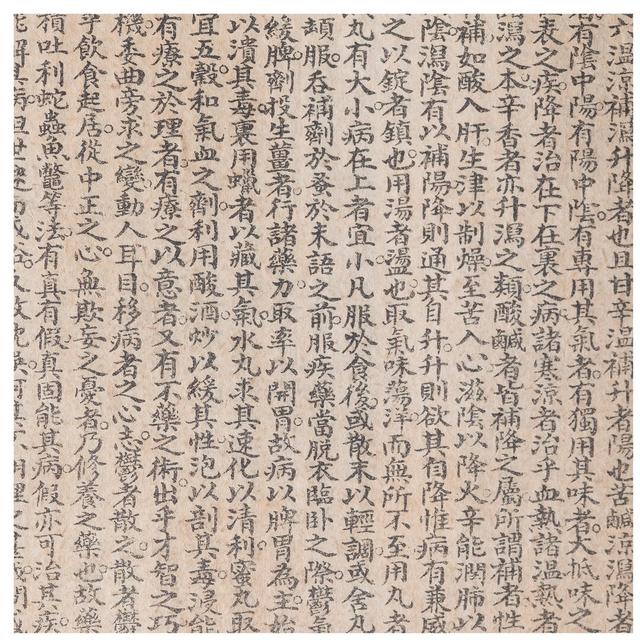 六溫涼補瀉升降者也且甘辛溫補升者陽也苦鹹涼瀉降者
者有陰中陽有陽中陰有專用其氣者有獨用其味者大抵味之
表之疾降者治在下在裏之病諸寒涼者治乎血執諸溫熱者
瀉之本辛香者亦升瀉之類酸鹹者皆補降之屬所謂補者性
補如酸入肝生津以制燥至苦入心滋陰以降火辛能潤肺以
陰瀉陰有以補陽降則通其自升升則欲其自降惟病有兼威
之以錠者鎮也用湯者盪也取氣味蕩洋而無所不至用丸者
丸有大小病在上者宜小凡服於食後或散末以輕調或舍丸
頡服吞補劑於蚤於未語之前服疾藥當脫衣臨卧之際鬱氣
緩脾劑投生薑者行諸藥力取率以開胃故病以脾胃為主始
以潰其毒裏用蠟者以藏其氣水丸求其速化以清利蜜丸取
宜五穀和氣血之劑利用酸酒炒以緩其性泡以剖其毒浸能
有療之於理者有療之以意者又有不藥之術出乎才智之巧
機委曲旁求之變動人耳目移病者之心志鬱者散之散者鬱
乎飲食起居從中正之心無欺妄之憂者乃修養之藥也故藥
積吐利蛇蟲魚鼈等法有真有假真固能其病假亦可治其疾